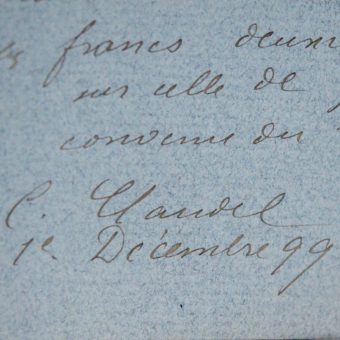 francs
sur celle de
convenue du
C. Claudel
1e Décembre 99